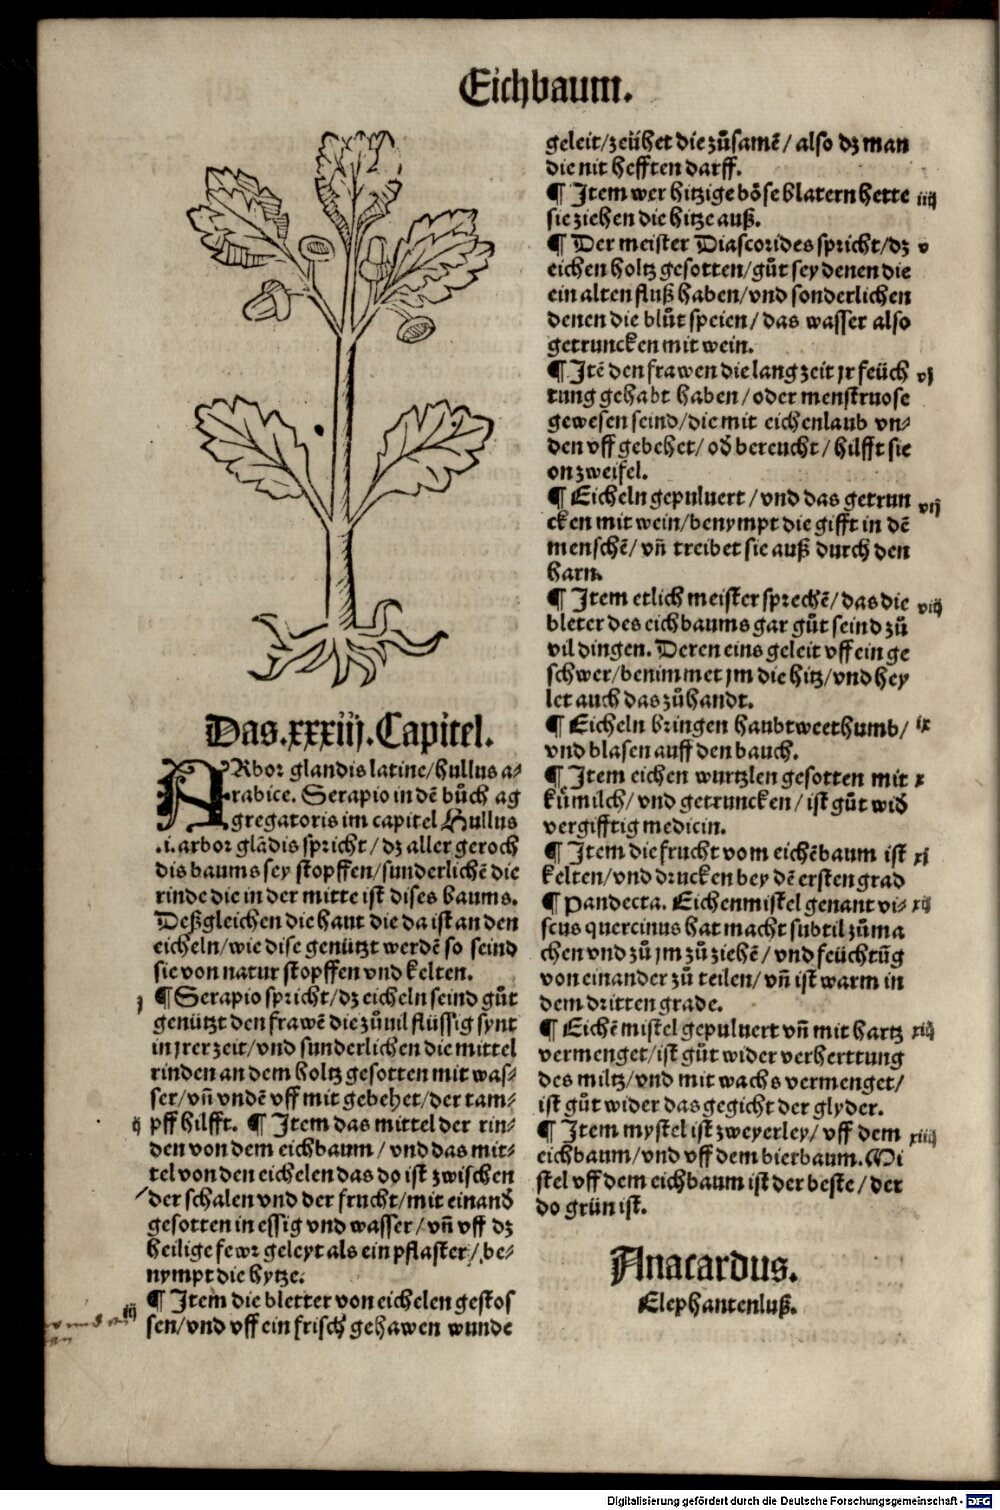 Eichbaum.
Das.xxxiij.Capitel.
ARbor glandis latine/hullus a⸗
rabice. Serapio in dē bůch ag
gregatoris im capitel Hullus
.i. arbor glādis spricht/dz aller geroch
dis baums sey stopffen/sunderlichē die
rinde die in der mitte ist dises baums.
Deßgleichen die haut die da ist an den
eicheln/wie dise genützt werdē so seind
sie von natur stopffen vnd kelten.
j ¶ Serapio spricht/dz eicheln seind gůt
genützt den frawē die zůuil flüssig synt
in jrer zeit/vnd sunderlichen die mittel
rinden an dem holtz gesotten mit was⸗
ser/vñ vndē vff mit gebehet/der tam⸗
ij pff hilfft. ¶ Item das mittel der rin⸗
den von dem eichbaum/vnd das mit⸗
tel von den eichelen das do ist zwischen
der schalen vnd der frucht/mit einand̄
gesotten in essig vnd wasser/vñ vff dz
heilige fewr geleyt als ein pflaster/be⸗
nympt die hytze.
iij ¶ Item die bletter von eichelen gestos
sen/vnd vff ein frisch gehawen wunde
geleit/zeühet die zůsamē/also dz man
die nit hefften darff.
¶ Item wer hitzige böse blatern hette iiij
sie ziehen die hitze auß.
¶ Der meister Diascorides spricht/dz v
eichen holtz gesotten/gůt sey denen die
ein alten fluß haben/vnd sonderlichen
denen die blůt speien/das wasser also
getruncken mit wein.
¶ Itē den frawen die lang zeit jr feüch vj
tung gehabt haben/oder menstruose
gewesen seind/die mit eichenlaub vn⸗
den vff gebehet/od̄ bereucht/hilfft sie
on zweifel.
¶ Eicheln gepuluert/vnd das getrun vij
cken mit wein/benympt die gifft in dē
menschē/vñ treibet sie auß durch den
harn.
¶ Item etlich meister sprechē/das die viij
bleter des eichbaums gar gůt seind zů
vil dingen. Deren eins geleit vff ein ge
schwer/benimmet jm die hitz/vnd hey
let auch das zůhandt.
¶ Eicheln bringen haubtweethumb/ ix
vnd blasen auff den bauch.
¶ Item eichen wurtzlen gesotten mit x
kümilch/vnd getruncken/ist gůt wid̄
vergifftig medicin.
¶ Item die frucht vom eichēbaum ist xj
kelten/vnd drucken bey dē ersten grad
¶ Pandecta. Eichenmistel genant vi⸗ xij
scus quercinus hat macht subtil zůma
chen vnd zů jm zů ziehē/vnd feüchtūg
von einander zů teilen/vñ ist warm in
dem dritten grade.
¶ Eichē mistel gepuluert vñ mit hartz xiij
vermenget/ist gůt wider verherttung
des miltz/vnd mit wachs vermenget/
ist gůt wider das gegicht der glyder.
¶ Item mystel ist zweyerley/vff dem xiiij
eichbaum/vnd vff dem bierbaum. Mi
stel vff dem eichbaum ist der beste/der
do grün ist.
Anacardus.
Elephantenluß.
Digitalisierung gefördert durch die Deutsche Forschungsgemeinschaft - DFG